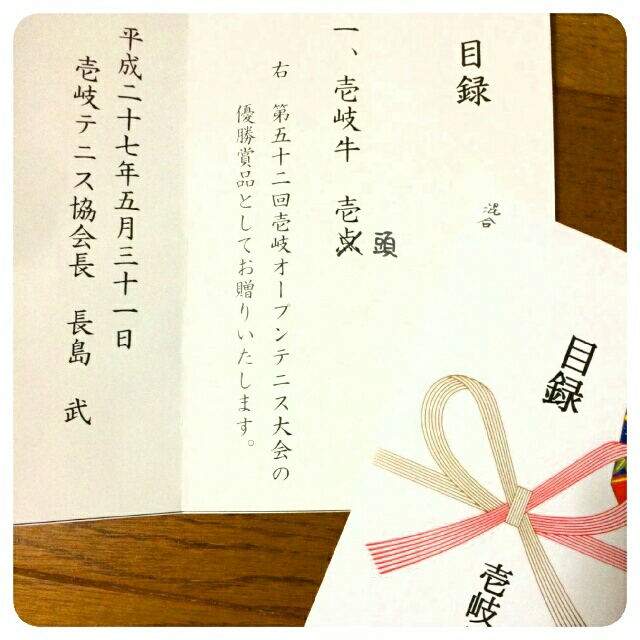 目録
混合
一、壱岐牛 壱点頭
右 第五十二回壱岐オープンテニス大会の
優勝賞品としてお贈りいたします。
平成二十七年五月三十一日
壱岐テニス協会長 長島 武
目録
壱岐